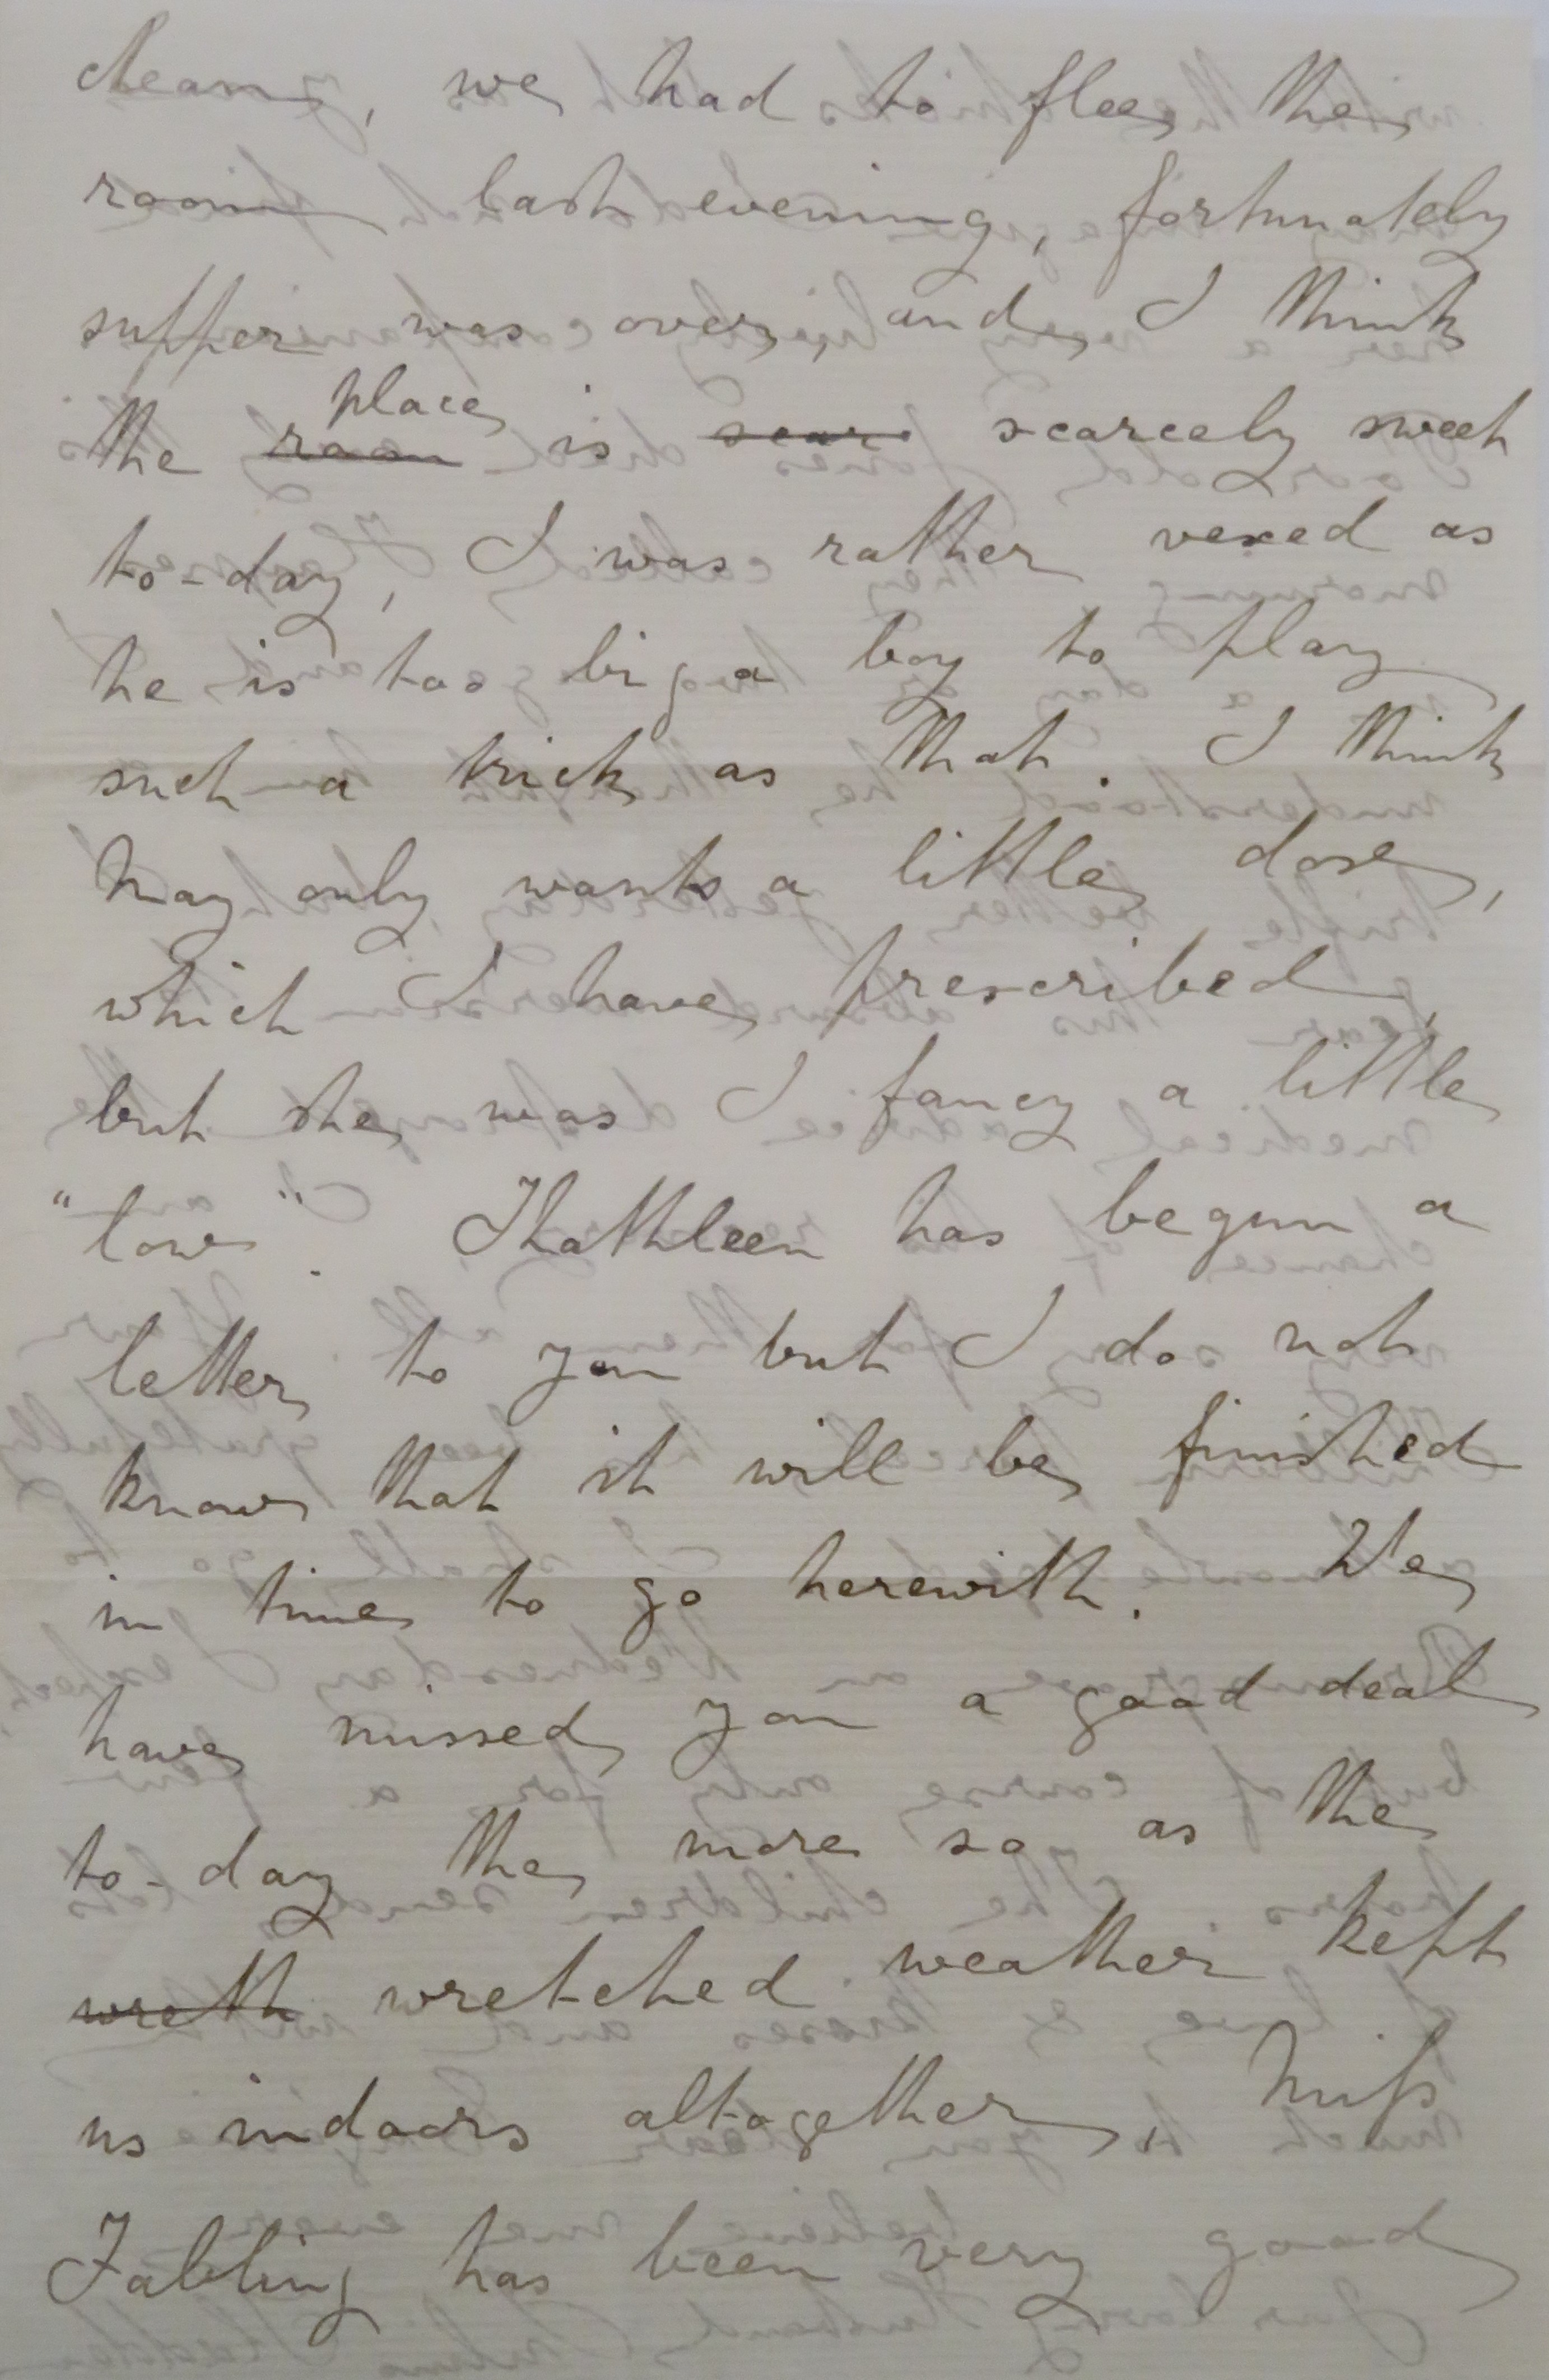 cleany, we had to flee the
room last evening, fortunately
supper was over, and I think
the ~~room~~ place is ~~scar~~ scarcely sweet
to-day, I was rather vexed as
he is too big a boy to play
such a trick as that. I think
May only wants a little dose,
which I have prescribed,
but she was I fancy a little
"low". Khathleen has begun a
letter to you but I do not
know that it will be finished
in time to go herewith. We
have missed you a good deal
to-day the more so as the
~~wreth~~ wretched weather kept
us indoors altogether, Miss
Fabling has been very good